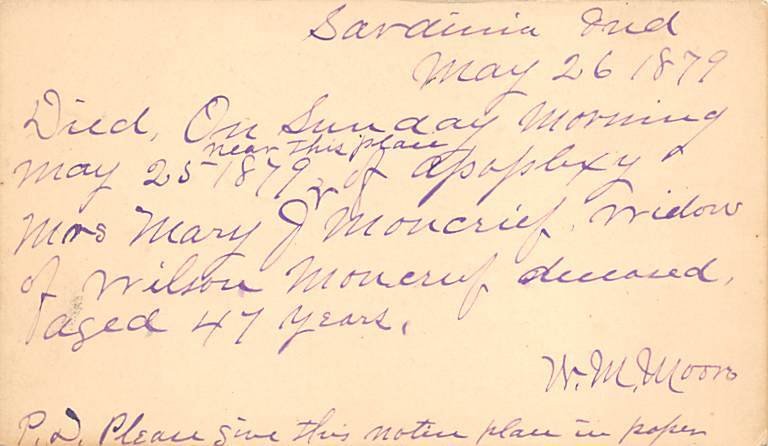 Sardinia Ind
May 26 1879
Died, On Sunday Morning
near this place
May 25 1879 of apoplexy
Mrs Mary J Moncrief, Widow
of Wilson Moncrief deceased,
aged 47 years,
W. M. Moore
P.S. Please give this notice place in paper